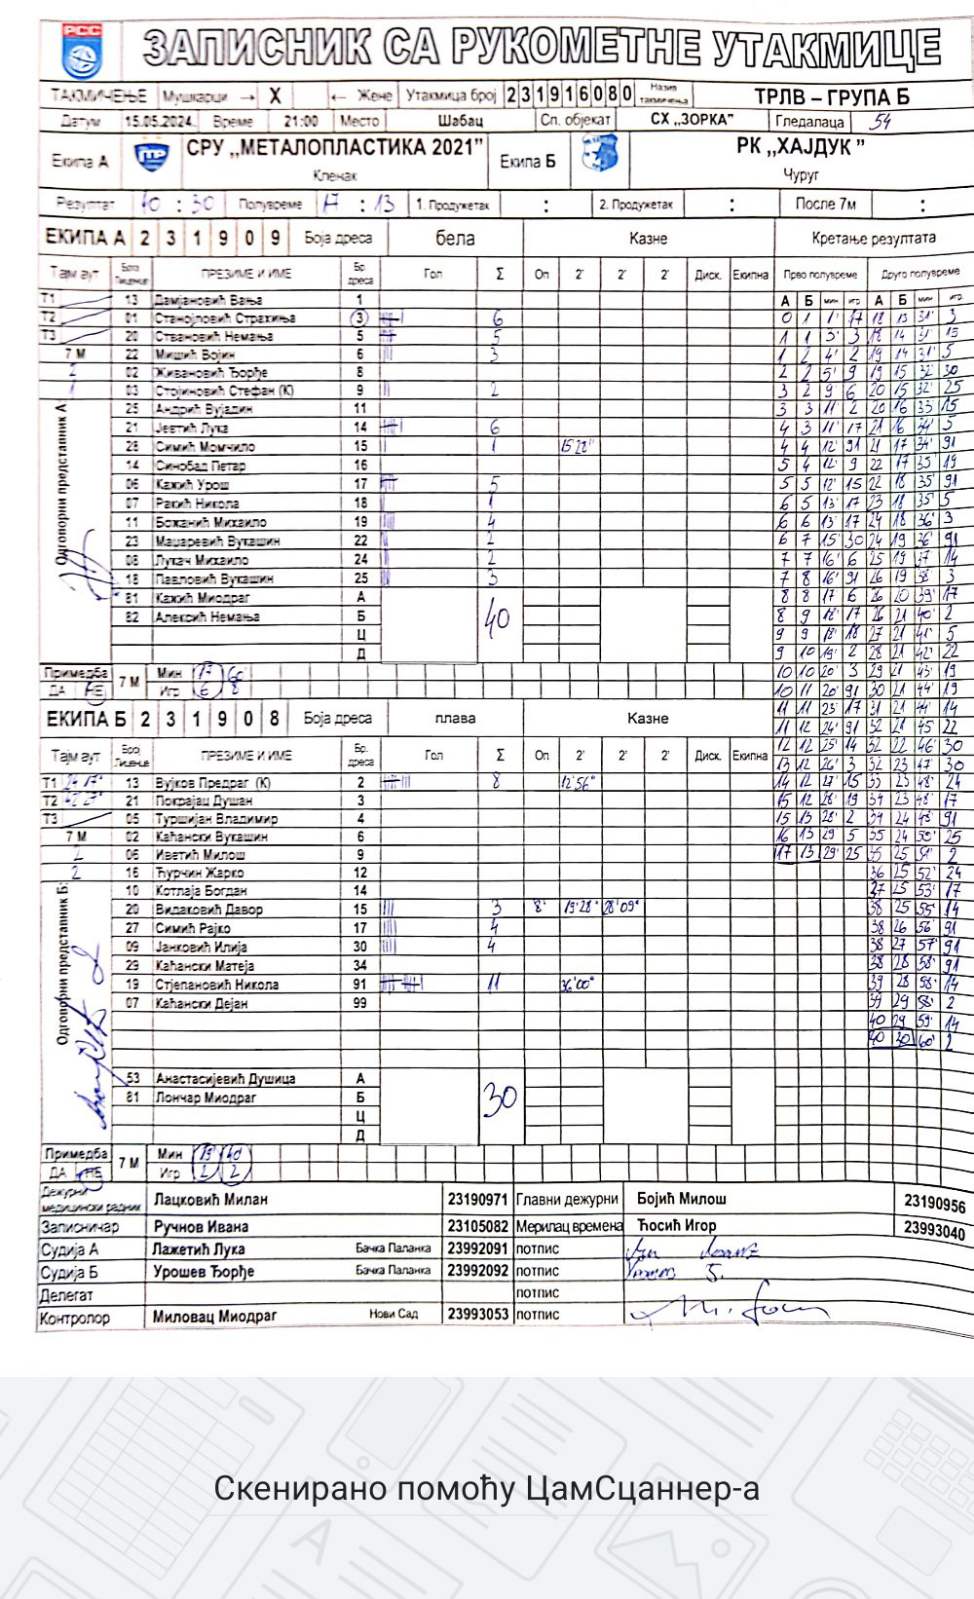 РСС
ЗАПИСНИК СА РУКОМЕТНЕ УТАКМИЦЕ
ТАКМИЧЕЊЕ Мушкарци → X ← Жене Утакмица број 2 3 1 9 1 6 0 8 0 Назив такмичења ТРЛВ – ГРУПА Б
Датум 15.05.2024. Време 21:00 Место Шабац Сп. објекат СХ „ЗОРКА” Гледалаца 54
Екипа А СРУ „МЕТАЛОПЛАСТИКА 2021” Кленак Екипа Б РК „ХАЈДУК ” Чуруг
Резултат 40 : 30 Полувреме 17 : 13 1. Продужетак : 2. Продужетак : После 7м :
ЕКИПА А 2 3 1 9 0 9 Боја дреса бела Казне Кретање резултата
Тајм аут Број Лиценце ПРЕЗИМЕ И ИМЕ Бр. дреса Гол Σ Оп 2' 2' 2' Диск. Екипна Прво полувреме Друго полувреме
А Б мин игр А Б мин игр
Т1 13 Дамјановић Вања 1
Т2 01 Станојловић Страхиња 3 6
Т3 20 Стевановић Немања 5 5
7 М 22 Мишић Војин 6 3
2 02 Живановић Ђорђе 8
1 03 Стојиновић Стефан (К) 9 2
25 Андрић Вујадин 11
21 Јевтић Лука 14 6
28 Симић Момчило 15 1 15'22"
14 Синобад Петар 16
06 Кажић Урош 17 5
07 Ракић Никола 18 1
11 Божанић Михаило 19 4
23 Мацаревић Вукашин 22 2
08 Лукач Михаило 24 2
18 Павловић Вукашин 25 3
81 Кажић Миодраг А
82 Алексић Немања Б
40
Ц
Д
Одговорни представник А
Примедба ДА НЕ 7 М Мин 17 60
Игр 6 8
0 1 1' 17 18 13 31' 3
1 1 3' 3 18 14 31' 15
1 2 4' 2 19 14 31' 5
2 2 5' 9 19 15 32' 30
3 2 9 6 20 15 32' 25
3 3 11' 2 20 16 33' 15
4 3 11' 17 21 16 34' 5
4 4 12' 91 21 17 34' 91
5 4 12' 9 22 17 35' 19
5 5 12' 15 22 18 35' 91
6 5 13' 17 23 18 35' 5
6 6 13' 17 24 18 36' 3
6 7 15' 30 24 19 36' 91
7 7 16' 6 25 19 37' 14
7 8 16' 91 26 19 38' 3
8 8 17 6 26 20 39' 17
8 9 18' 17 26 21 40' 2
9 9 18' 18 27 21 41' 5
9 10 19' 2 28 21 42' 22
10 10 20' 3 29 21 43' 19
10 11 20' 91 30 21 44' 19
11 11 23' 17 31 21 44' 14
11 12 24' 91 32 21 45 22
12 12 25' 14 32 22 46' 30
13 12 26' 3 32 23 47' 30
14 12 27' 15 33 23 48' 24
15 12 28' 19 34 23 48' 17
15 13 28' 2 34 24 49' 91
16 13 29' 5 35 24 50' 25
17 13 29' 25 35 25 51' 2
36 25 52' 24
37 25 53' 17
38 25 55' 14
38 26 56' 91
38 27 57' 91
38 28 58' 91
39 28 58' 14
39 29 58' 2
40 29 59' 14
40 30 60' 2
ЕКИПА Б 2 3 1 9 0 8 Боја дреса плава Казне
Тајм аут Број Лиценце ПРЕЗИМЕ И ИМЕ Бр. дреса Гол Σ Оп 2' 2' 2' Диск. Екипна
Т1 13 Вујков Предраг (К) 2 8 12'56"
Т2 21 Покрајац Душан 3
Т3 05 Туршијан Владимир 4
7 М 02 Каћански Вукашин 6
2 06 Иветић Милош 9
2 16 Ћурчин Жарко 12
10 Котлаја Богдан 14
20 Видаковић Давор 15 3 8' 19'28" 28'09"
27 Симић Рајко 17 4
09 Јанковић Илија 30 4
29 Каћански Матеја 34
19 Стјепановић Никола 91 11 36'00"
07 Каћански Дејан 99
53 Анастасијевић Душица А
81 Лончар Миодраг Б
30
Ц
Д
Одговорни представник Б:
Примедба ДА НЕ 7 М Мин 19' 40
Игр 2 2
Дежурни медицински радник Лацковић Милан 23190971 Главни дежурни Бојић Милош 23190956
Записничар Ручнов Ивана 23105082 Мерилац времена Ћосић Игор 23993040
Судија А Лажетић Лука Бачка Паланка 23992091 потпис
Судија Б Урошев Ђорђе Бачка Паланка 23992092 потпис
Делегат потпис
Контролор Миловац Миодраг Нови Сад 23993053 потпис
Скенирано помоћу ЦамСцаннер-а